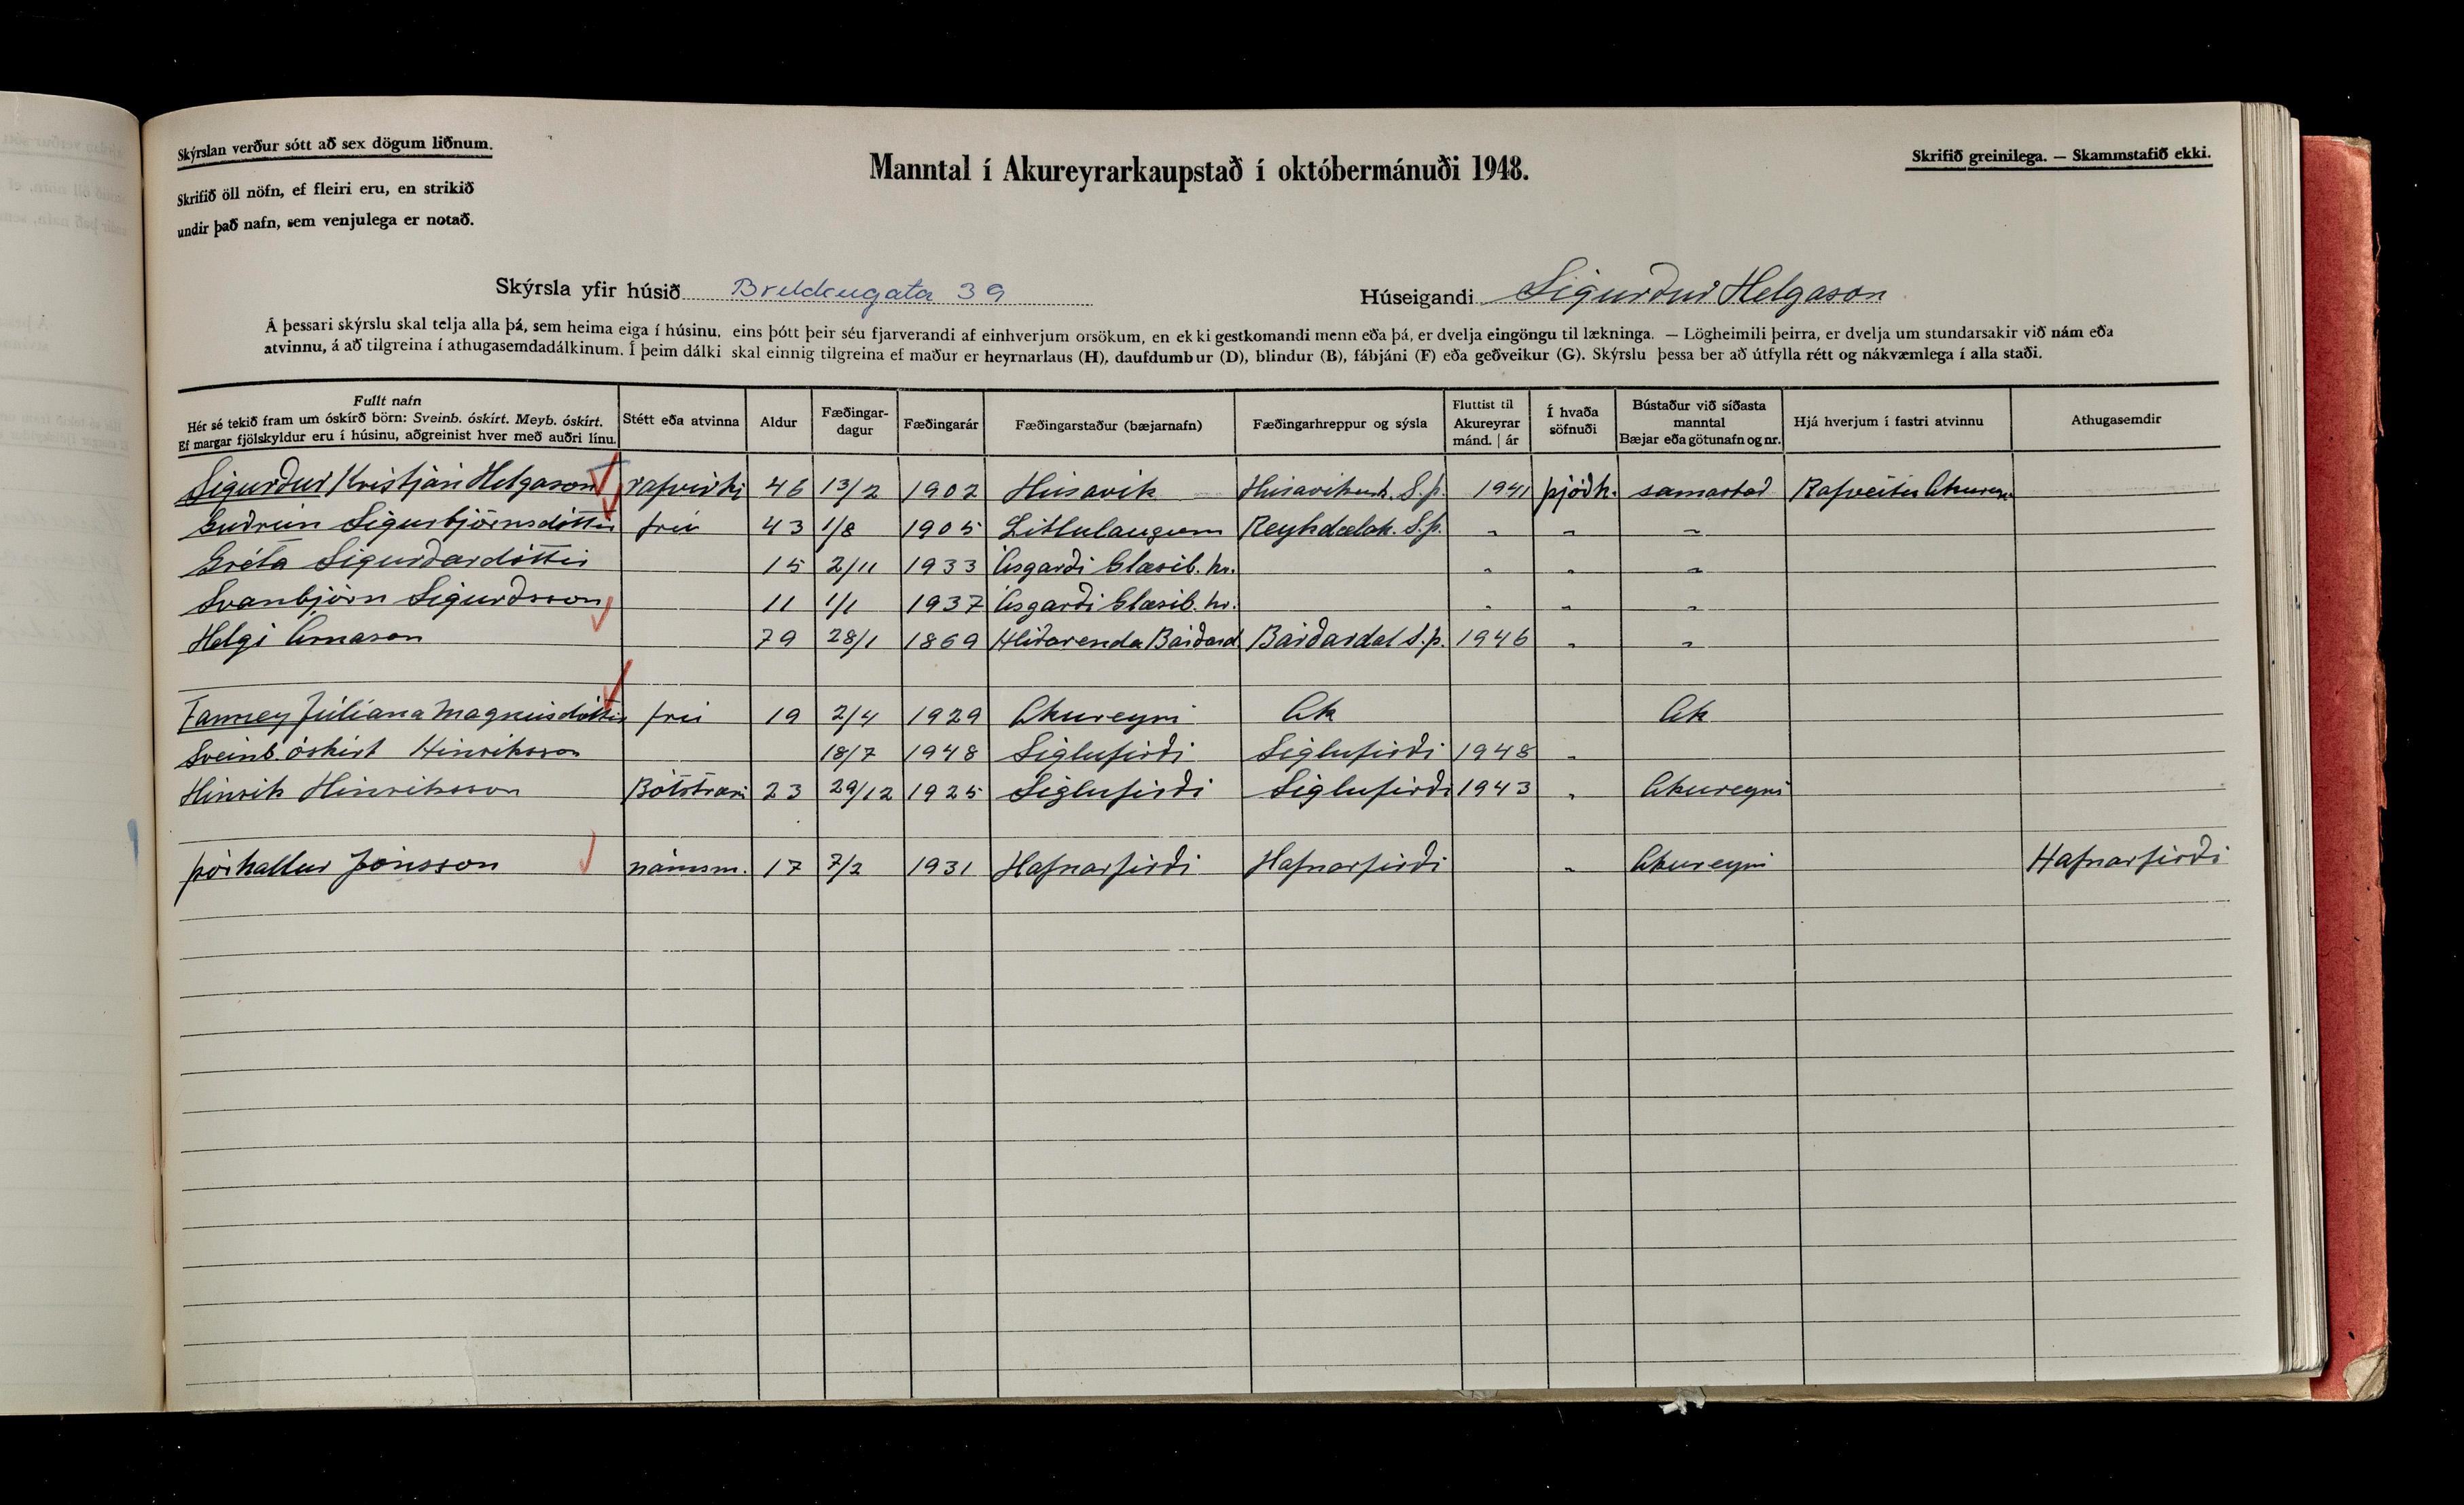 Skýrslan verður sótt að sex dögum liðnum.
Skrifið öll nöfn, ef fleiri eru, en strikið
undir það nafn, sem venjulega er notað.
Manntal í Akureyrarkaupstað í októbermánuði 1948.
Skrifið greinilega. — Skammstafið ekki.
Skýrsla yfir húsið Brekkugata 39
Húseigandi Sigurður Helgason
Á þessari skýrslu skal telja alla þá, sem heima eiga í húsinu, eins þótt þeir séu fjarverandi af einhverjum orsökum, en ekki gestkomandi menn eða þá, er dvelja eingöngu til lækninga. — Lögheimili þeirra, er dvelja um stundarsakir við nám eða
atvinnu, á að tilgreina í athugasemdadálkinum. Í þeim dálki skal einnig tilgreina ef maður er heyrnarlaus (H), daufdumbur (D), blindur (B), fábjáni (F) eða geðveikur (G). Skýrslu þessa ber að útfylla rétt og nákvæmlega í alla staði.
Fullt nafn
Hér sé tekið fram um óskírð börn: Sveinb. óskírt. Meyb. óskírt.
Ef margar fjölskyldur eru í húsinu, aðgreinist hver með auðri línu.
Stétt eða atvinna
Aldur
Fæðingar-
dagur
Fæðingarár
Fæðingarstaður (bæjarnafn)
Fæðingarhreppur og sýsla
Fluttist til
Akureyrar
mánd. | ár
Í hvaða
söfnuði
Bústaður við síðasta
manntal
Bæjar eða götunafn og nr.
Hjá hverjum í fastri atvinnu
Athugasemdir
Sigurður Kristján Helgason rafvirki 46 13/2 1902 Húsavík Húsavíkurh. S.þ. 1941 þjóðk. samastað Rafveitu Akureyr
Guðrún Sigurbjörnsdóttir frú 43 1/8 1905 Litlulaugum Reykdælah. S.þ. " " "
Gréta Sigurðardóttir 15 2/11 1933 Ásgarði Glæsib. hr. " " "
Svanbjörn Sigurðsson 11 1/1 1937 Ásgarði Glæsib. hr. " " "
Helgi Árnason 79 28/1 1869 Hlíðarenda Bárðard Bárðardal S.þ. 1946 " "
Fanney Júlíana Magnúsdóttir frú 19 2/4 1929 Akureyri Ak Ak
Sveinb. óskírt Hinriksson 18/7 1948 Siglufirði Siglufirði 1948 "
Hinrik Hinriksson Bólstrari 23 29/12 1925 Siglufirði Siglufirði 1943 " Akureyri
Þórhallur Jónsson námsm. 17 7/2 1931 Hafnarfirði Hafnarfirði " Akureyri Hafnarfirði